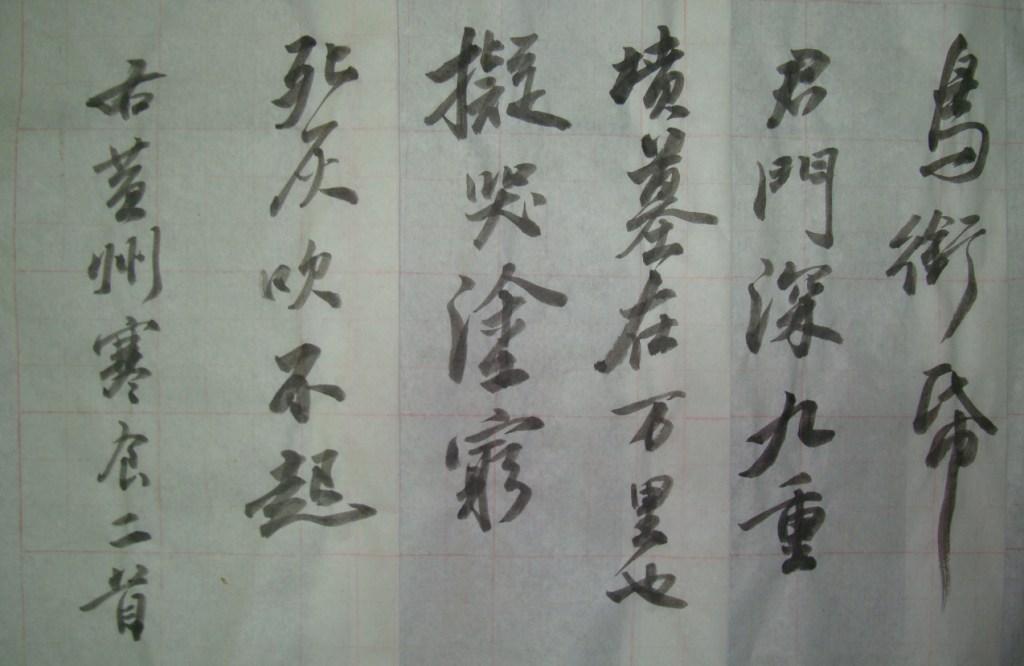 鳥銜帋
君門深九重
墳墓在万里也
擬哭塗窮
死灰吹不起
右黃州寒食二首